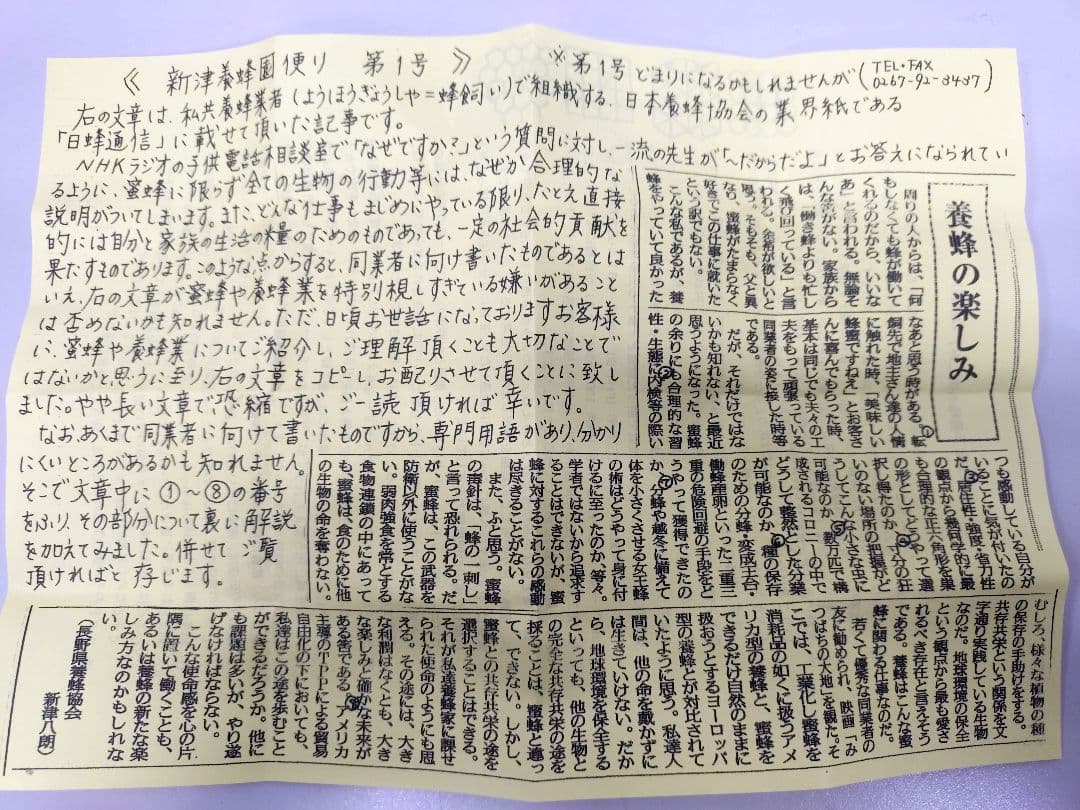 《 新津養蜂園便り 第1号 》 ※第1号どまりになるかもしれませんが (TEL・FAX 0267-92-3437)
右の文章は、私共養蜂業者(ようほうぎょうしゃ=蜂飼い)で組織する、日本養蜂協会の業界紙である
「日蜂通信」に載せて頂いた記事です。
NHKラジオの子供電話相談室で「なぜですか?」という質問に対し、一流の先生が「~だからだよ」とお答えになられてい
るように、蜜蜂に限らず全ての生物の行動等には、なぜか合理的な
説明がついてしまいます。また、どんな仕事もまじめにやっている限り、たとえ直接
的には自分と家族の生活の糧のためのものであっても、一定の社会的貢献を
果たすものであります。このような点からすると、同業者に向け書いたものであるとは
いえ、右の文章が蜜蜂や養蜂業を特別視しすぎている嫌いがあること
は否めないかも知れません。ただ、日頃お世話になっておりますお客様
に、蜜蜂や養蜂業についてご紹介し、ご理解頂くことも大切なことで
はないかと思うに至り、右の文章をコピーし、お配りさせて頂くことに致し
ました。やや長い文章で恐縮ですが、ご一読頂ければ幸いです。
なお、あくまで同業者に向けて書いたものですから、専門用語があり、分かり
にくいところがあるかも知れません。
そこで文章中に①~⑧の番号
をふり、その部分について裏に解説
を加えてみました。併せてご覧
頂ければと存じます。
養蜂の楽しみ
周りの人からは、「何
もしなくても蜂が働いて
くれるのだから、いいな
あ」と言われる。無論そ
んなわけがない。家族から
は、「働き蜂よりも忙し
く飛び回っている」と言
われる。
思う。そもそも、父と異
なり、蜜蜂がたまらなく
好きでこの仕事に就いた
という訳でもない。
こんな私であるが、養
蜂をやっていて良かった
なあと思う時がある。転①
飼先で地主さん達の人情
に触れた時、「美味しい
蜂蜜ですねえ」とお客さ
んに喜んでもらった時、
基本は同じでも夫々の工
夫をもって頑張っている
同業者の姿に接した時等
である。
だが、それだけではな
いかも知れない、と最近
思うようになった。蜜蜂
の余りにも合理的な習
性・生態に②内検等の際い
つも感動している自分が
いることに気が付いたの
だ。③居住性・強度・省力性
の観点から幾何学的に最
も合理的な正六角形を巣
の形としてどうやって選
択し得たのか。④寸分の狂
いのない場所の把握がど
うしてこんな小さな虫に
可能なのか。⑤数万匹で構
成されるコロニーの中で
どうして整然とした分業
が可能なのか。⑥種の保存
のための分蜂・変成王台・
働蜂産卵といった二重三
重の危険回避の手段をど
うやって獲得できたの
か。⑦分蜂や越冬に備えて
体を小さくさせる女王蜂
の術はどうやって身に付
けるに至ったのか、等々。
学者ではないから追求す
ることはできないが、蜜
蜂に対するこれらの感動
は尽きることがない。
また、ふと思う。蜜蜂
の毒針は、「蜂の一刺し」
と言って恐れられる。だ
が、蜜蜂は、この武器を
防衛以外に使うことがな
い。弱肉強食を常とする
食物連鎖の中にあって
も、蜜蜂は、食のために他
の生物の命を奪わない。
むしろ、様々な植物の種
の保存の手助けをする。
共存共栄という関係を文
字通り実践している生物
なのだ。地球環境の保全
という観点から最も愛さ
れるべき存在と言えそう
である。養蜂はこんな蜜
蜂に関わる仕事なのだ。
若くて優秀な同業者の
友に勧められ、映画「み
つばちの大地」を観た。そ
こでは、工業化し蜜蜂を
消耗品の如くに扱うアメ
リカ型の養蜂と、蜜蜂を
できるだけ自然のままに
扱おうとするヨーロッパ
型の養蜂とが対比されて
いたように思う。私達人
間は、他の命を戴かずに
は生きていけない。だか
ら、地球環境を保全する
といっても、他の生物と
の完全な共存共栄の途を
採ることは、蜜蜂と違っ
て、できない。しかし、
蜜蜂との共存共栄の途を
選択することはできる。
それが私達養蜂家に課せ
られた使命のようにも思
える。その途には、大き
な利潤はなくとも、大き
な楽しみと確かな未来が
ある筈である。⑧アメリカ
主導のTPPによる貿易
自由化の下においても、
私達はこの途を歩むこと
ができるだろうか。他に
も課題は多いが、やり遂
げなければならない。
こんな使命感を心の片
隅に置いて働くことも、
あるいは養蜂の新たな楽
しみ方なのかもしれない
(長野県養蜂協会
新津八朗)